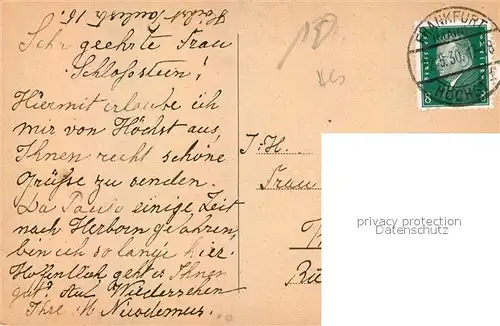 Sehr geehrte Frau
Schloßstein!
Hiermit erlaube ich
mir von Höchst aus,
Ihnen recht schöne
Grüße zu senden.
Da Paula einige Zeit
nach Herborn gefahren,
bin ich so lange hier.
Hoffentlich geht es Ihnen
gut? Auf Wiedersehen
Ihre M Nicodemus.
Höchst
15.
FRANKFURT
(MAIN)
5.30.
HÖCHST
8
I. H.
Frau
privacy protection
Datenschutz